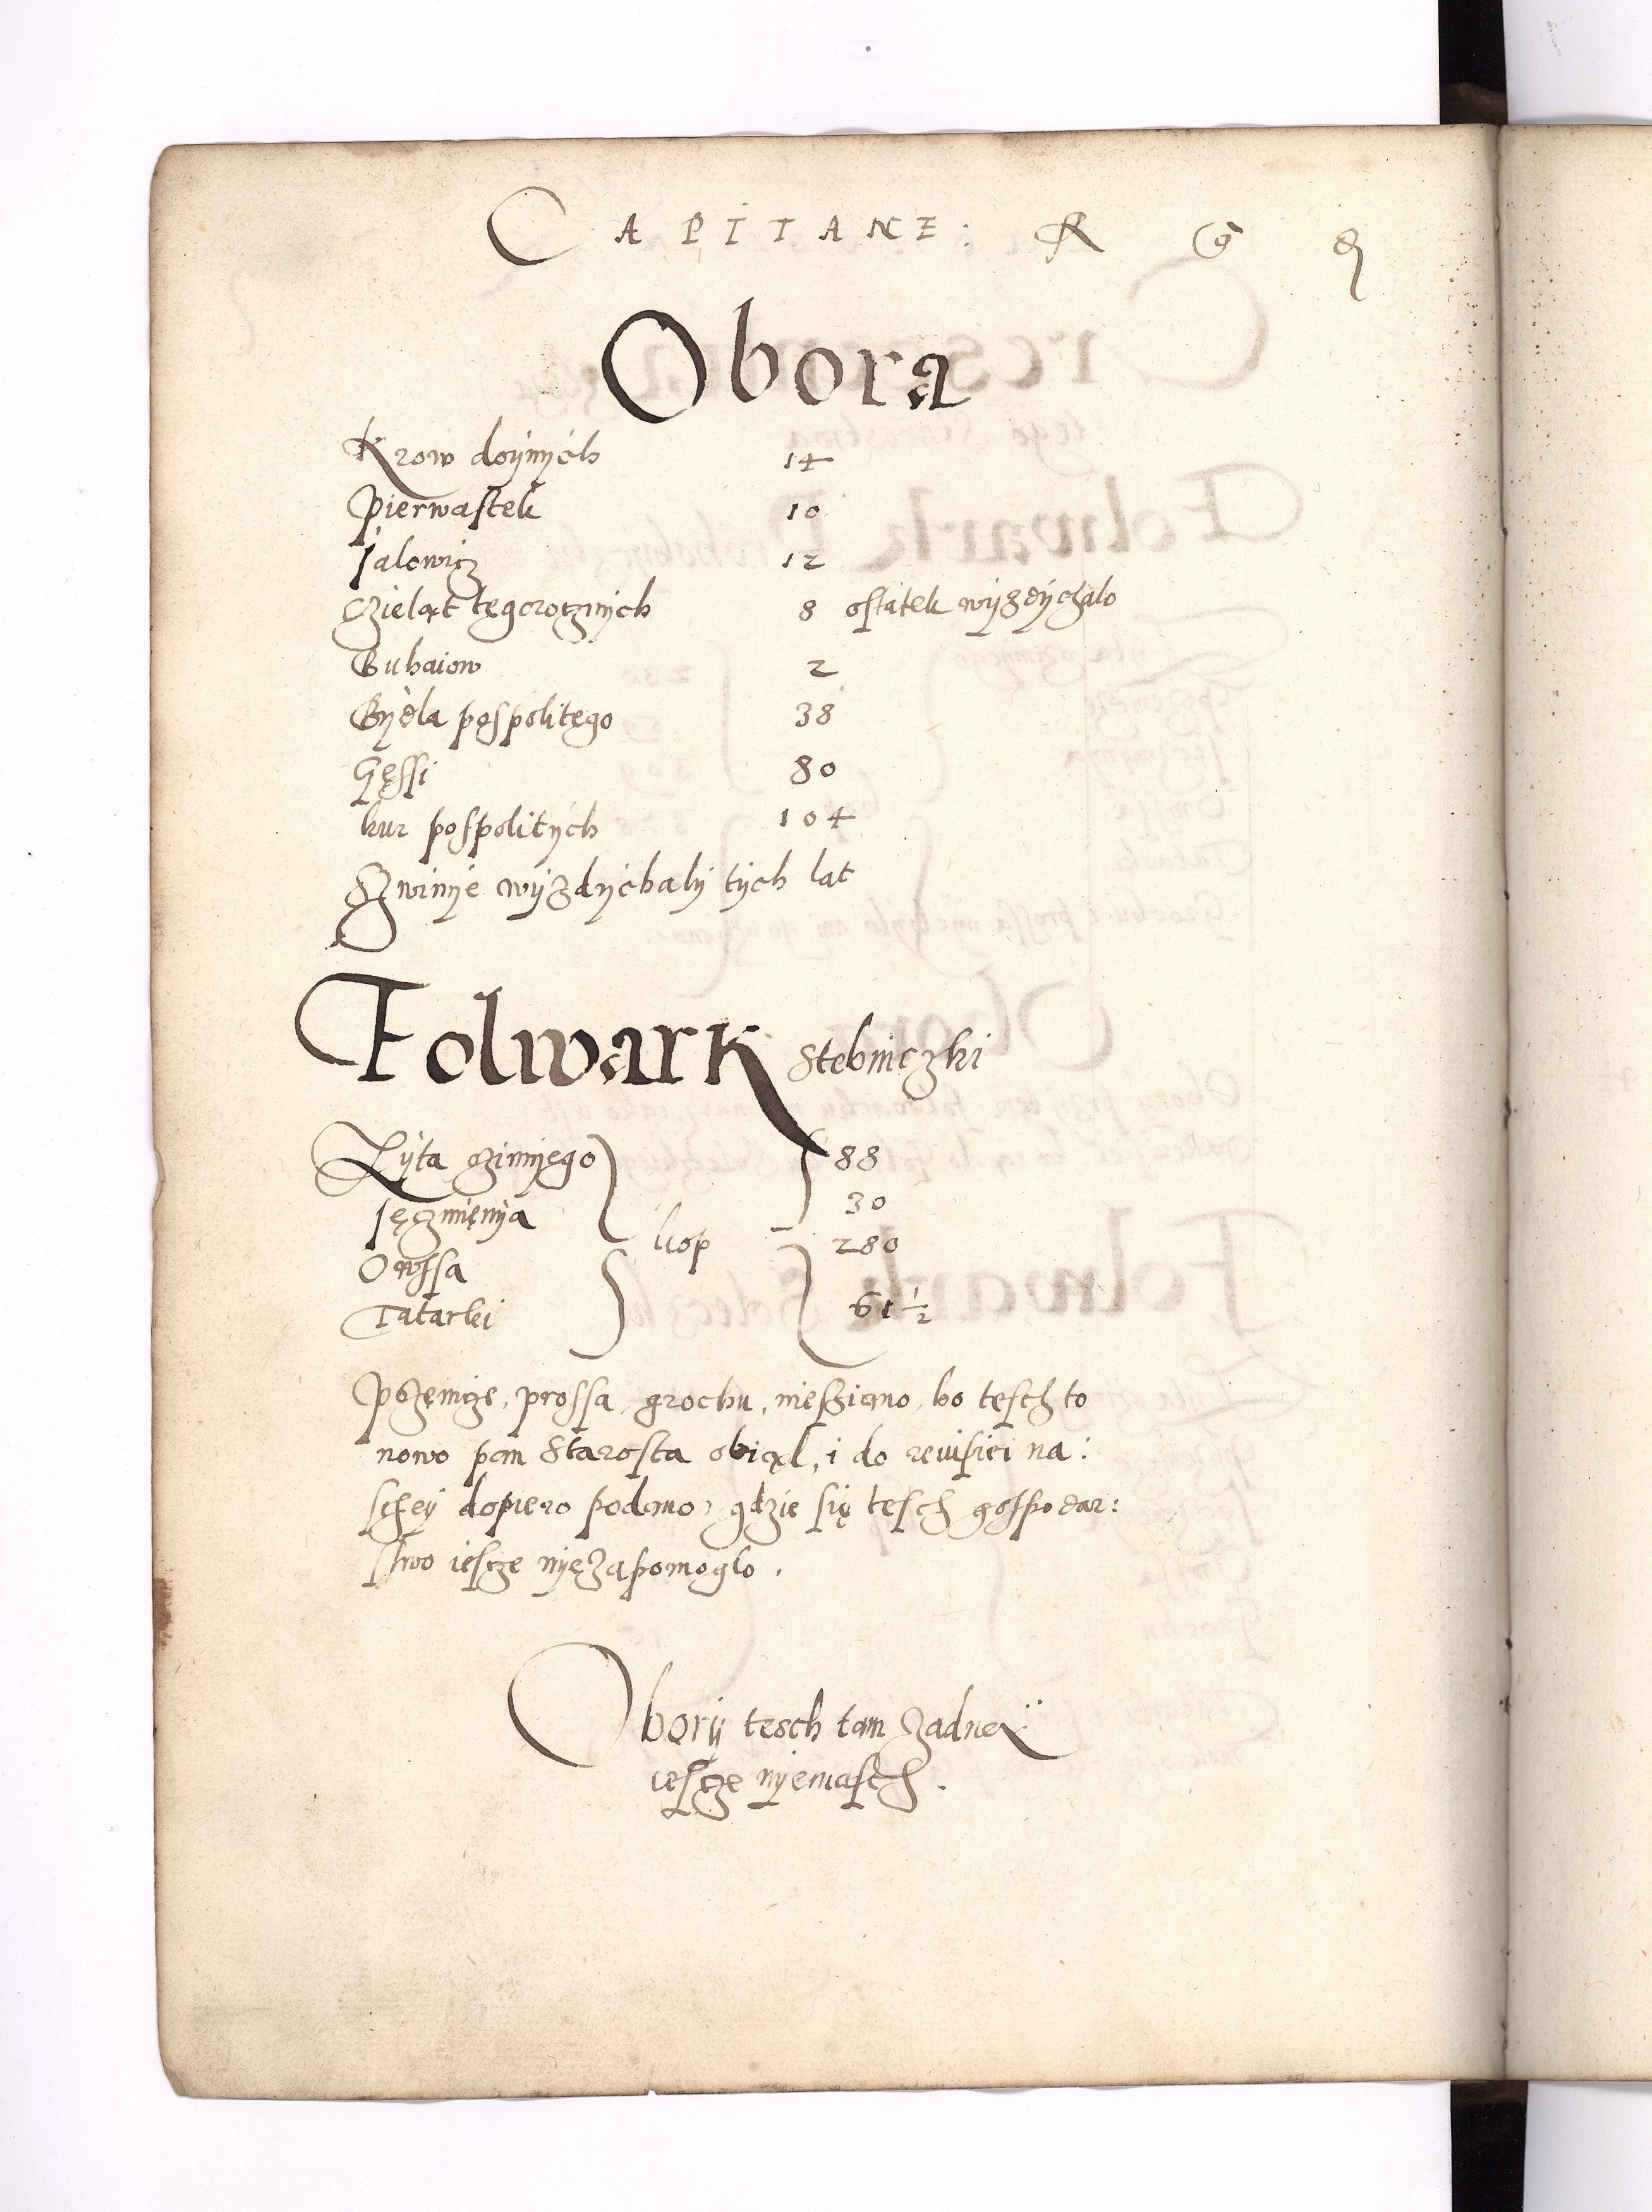 CAPITANE:
Obora
Krow doÿnÿch 14
Pierwastek 10
Jalowicz 12
Czieląt tęgorocznÿch 8 ostatek wÿzdÿchalo
Buhaiow 2
Bÿdla pospolitego 38
Gęssi 80
kur pospolitÿch 104
Szwinÿe wÿzdÿchalÿ tÿch lat
Folwark Stebniczki
Zÿta ozimÿego 88
Jęczmięnÿa 30
kop
Owssa 280
Tatarki 61 1/2
Pszęnicze, prossa, grochu, niessiano, bo tesch to
nowo pan Starosta obiął, i do reuisiei na:
scheÿ dopiero podano, gdzie się tesch gospodar:
stwo iescze nÿe zapomoglo.
Oborÿ tesch tam zadneÿ
iescze nÿemasch.